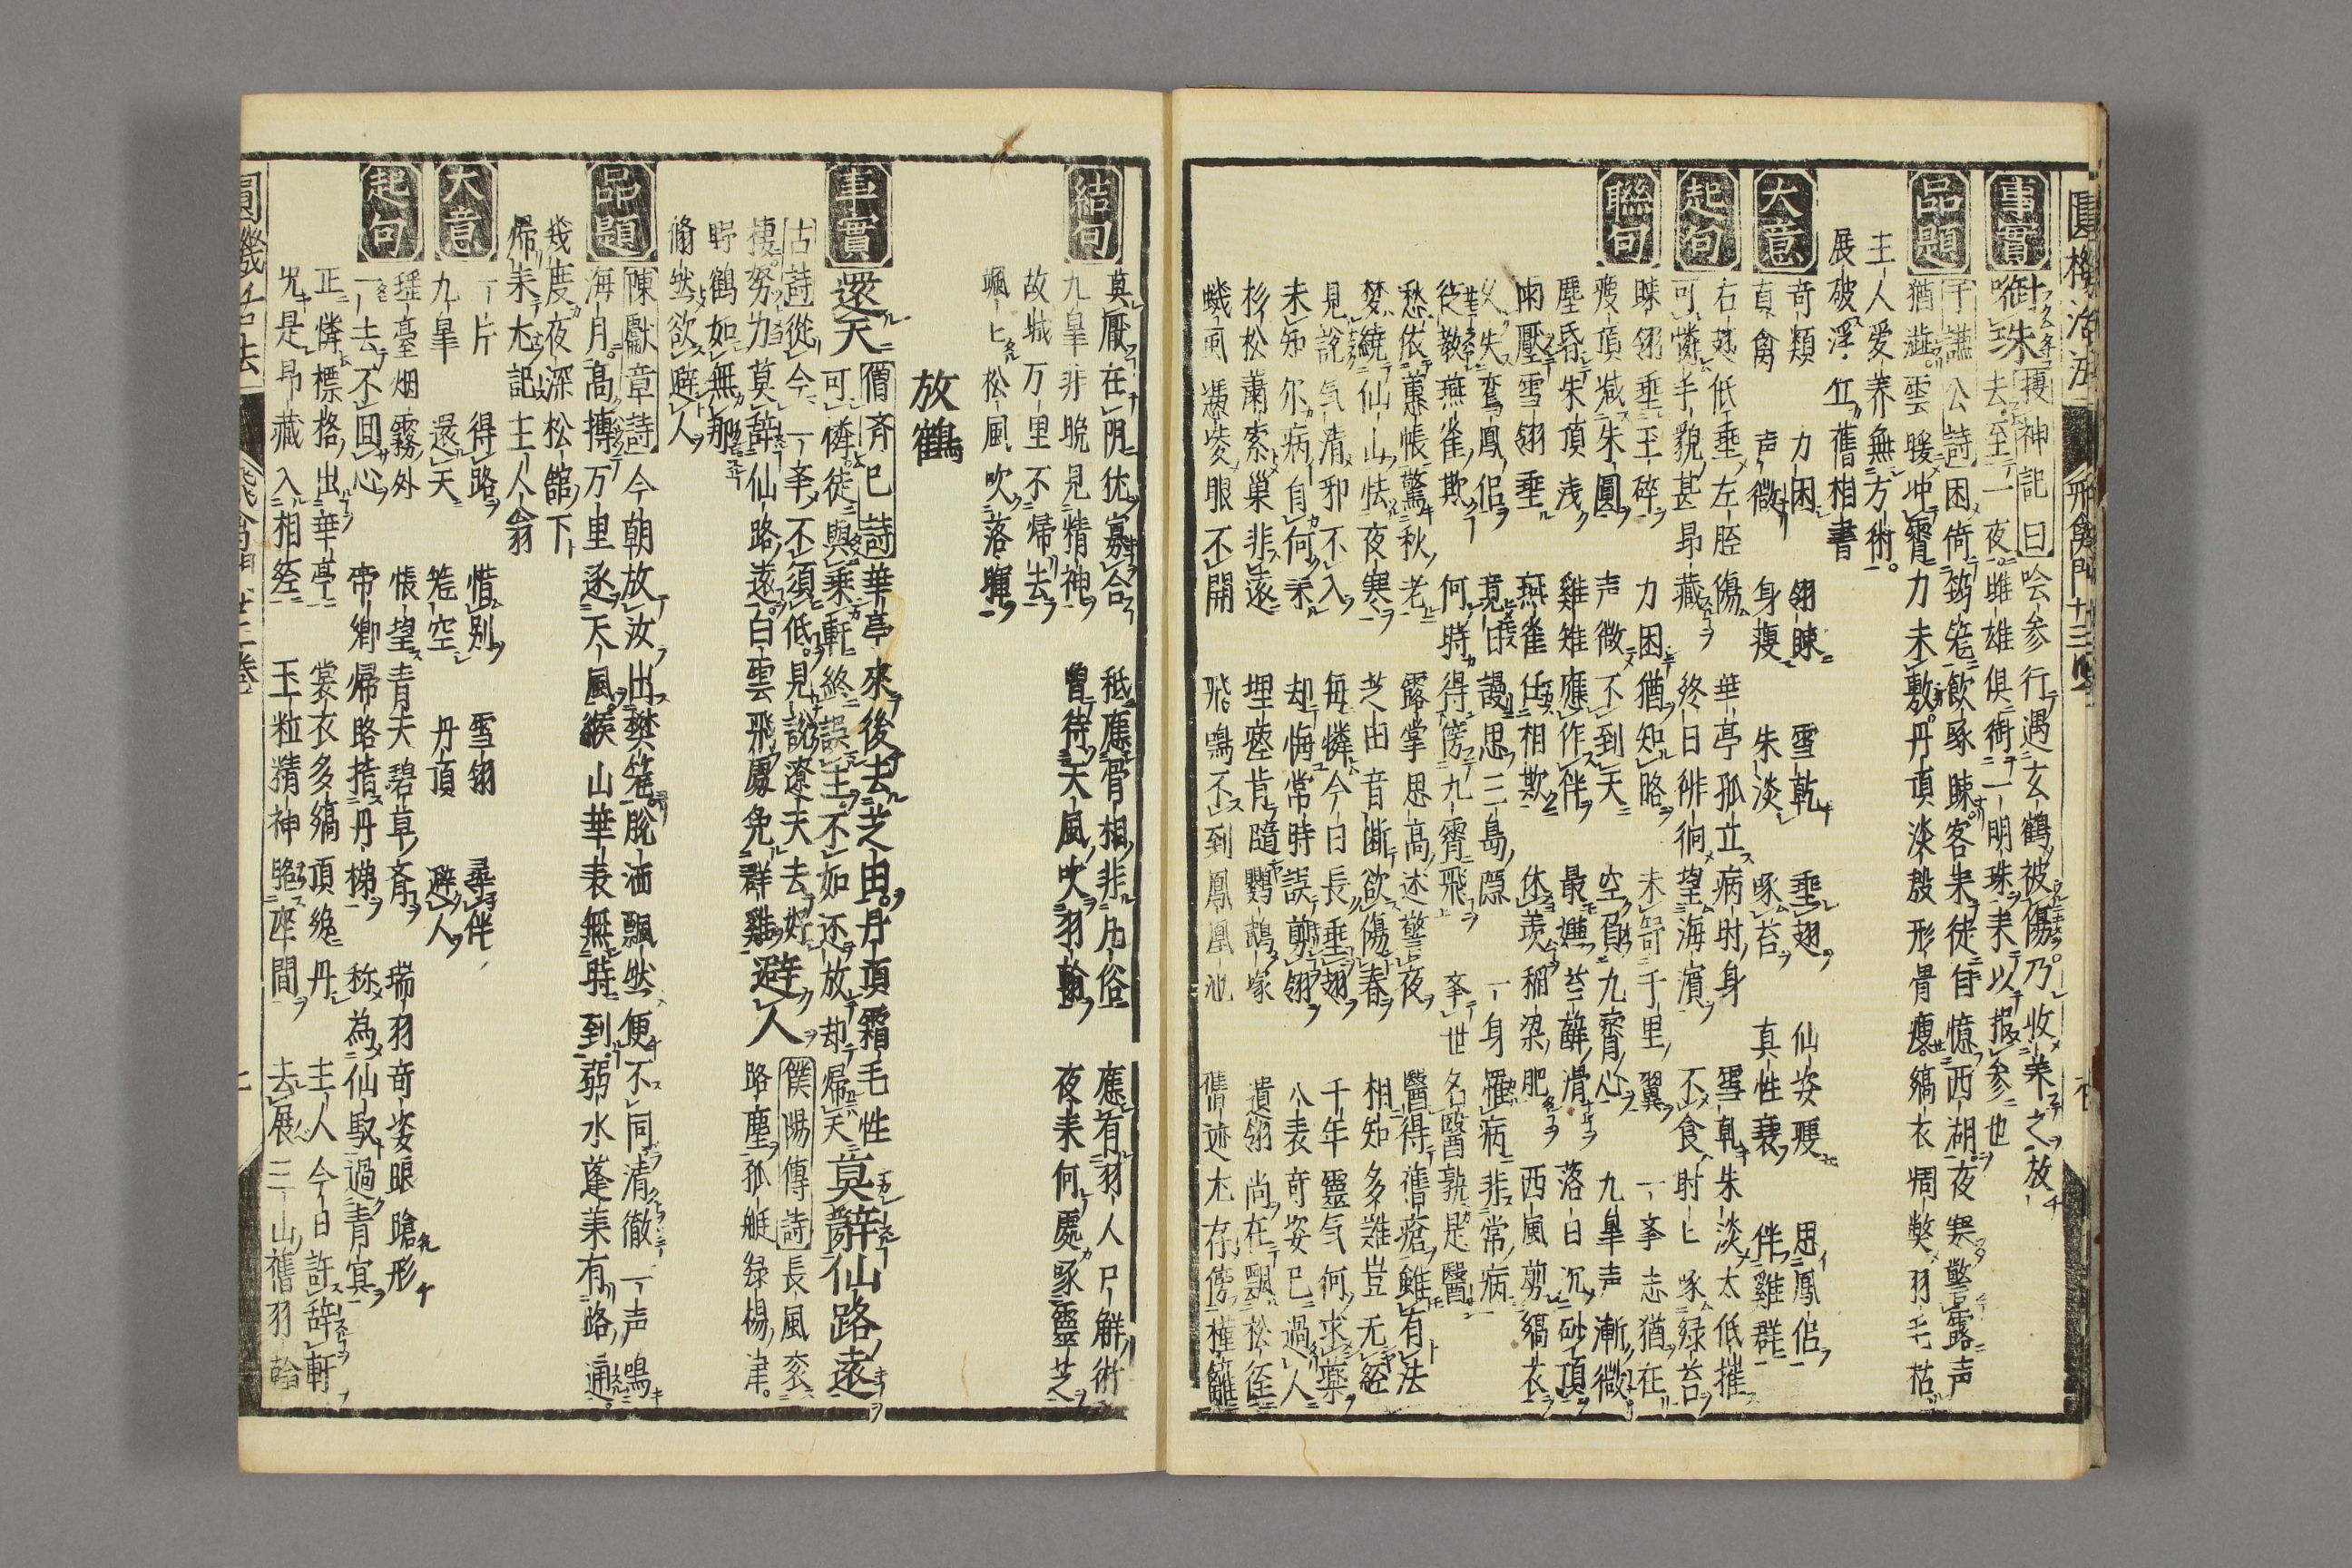 事實
啣珠 搜神記曰 噲參行遇玄鶴被傷乃收養之放
去至一夜雌雄俱啣一明珠來以报參也
品題
于謙公詩 困倚筠笼飲啄踈客朱徒自憶西湖夜寒警露声
猶澁雲暖冲霄力未敷丹頂淡殷形骨瘦縞衣凋弊羽毛枯
主人爱养無方術
展破浮丘舊相書
大意
奇類 力困 翎踈 雪乾 垂翅 仙姿瘦 思鳳侣
真禽 声微 身瘦 朱淡 啄苔 真性衰 伴雞群
起句
右翅低垂左胫傷 華亭孤立病时身 雪乹朱淡太低摧
可憐手貌甚昻藏 終日徘徊望海濱 不食时匕啄绿苔
踈翎垂玉碎 力困猶知路 未寄千里翼 一季志猶在
聯句
瘦頂减朱圓 声微不到天 空負九霄心 九皐声漸微
塵昏朱頂浅 雞雉應作伴 最嫌苔藓滑 落日沉砂頂
雨壓雪翎垂 燕雀任相欺 休羡稻梁肥 西風剪縞衣
久失鸾鳳侣 竟日謾思三島隱 一身羅病非常病
從教燕雀欺 何時得傍九霄飛 季世名醫孰是醫
愁依蕙帳驚秋老 露掌思高述警夜 醫得舊瘡雖有法
梦繞仙山怯夜寒 芝田音断欲傷春 相知多難豈无經
見說气清邪不入 每憐今日長垂翅 千年靈气何求藥
未知尔病自何来 却悔常時誤剪翎 八表奇姿已過人
杉松蕭索巢非遂 埋瘗肯隨鸚鵡塚 遺翎尚在飄松徑
蟣虱憑凌眼不開 飛鳴不到鳳凰池 舊迹尤存傍槿籬
結句
莫厭在阴犹寡合 秪應骨相非凡俗 應有羽人尸解術
九皐非晚見精神 曾待天風吹羽翰 夜来何處啄靈芝
故城万里不歸去
颯匕松風吹落暉
放鶴
事實
還天 僧斉已詩 華亭來後去芝田丹頂霜毛性
可憐徒與乘軒終誤主不如还放却歸天 莫辞仙路遠
古詩 從今一季不須低見說遼天去好 避人 僕陽傳詩 長風衮
棲努力莫辞仙路遠白雲飛處免群雞 路塵孤艇绿楊津
時鶴如無那
翛然欲避人
品題
陳獻章詩 今朝放汝出樊笼脫洒飄然便不同清徹一声鳴
海月高摶万里逐天風緱山華表無時到弱水蓬莱有路通
幾度夜深松舘下
歸来尤記主人翁
大意
一片 得路 惜别 雪翎 尋伴
九皐 還天 笼空 丹頂 避人
起句
瑶臺烟霧外 悵望青天碧草斉 瑞羽奇姿眼䠂形
一去不囬心 帝鄉歸路指丹梯 称為仙馭過青㝠
正憐標格出華亭 裳衣多縞頂纔丹 主人今日許辞軒
㒵是昻藏入相経 玉粒精神晗啐間 去展三山舊羽翰